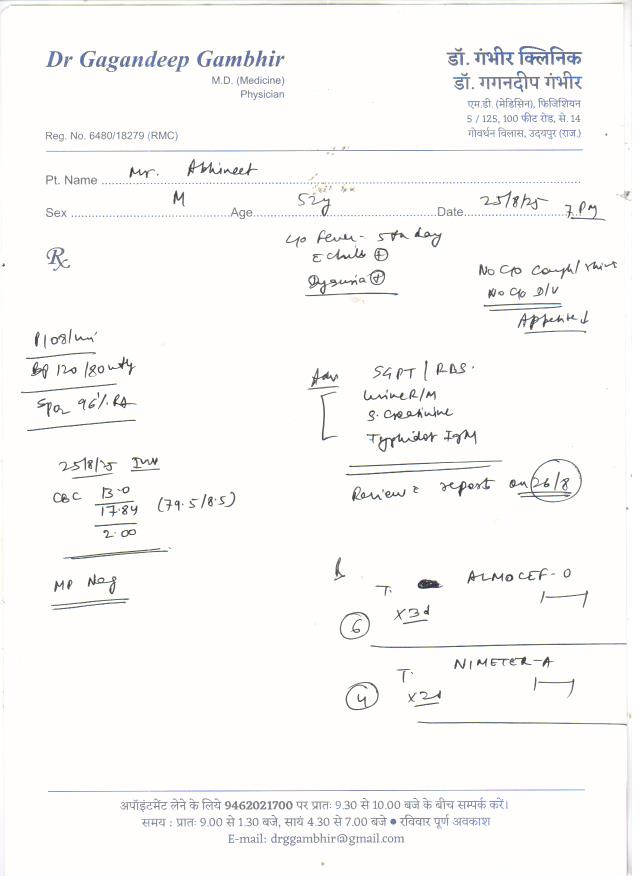 Dr Gagandeep Gambhir
M.D. (Medicine)
Physician
Reg. No. 6480/18279 (RMC)
डॉ. गंभीर क्लिनिक
डॉ. गगनदीप गंभीर
एम.डी. (मेडिसिन), फिजिशियन
5 / 125, 100 फीट रोड, से. 14
गोवर्धन विलास, उदयपुर (राज.)
Pt. Name Mr. Abhineet
Sex M Age 52y Date 25/8/25 7 PM
Rx
c/o fever - 5th day
c chills (+)
Dysuria (+)
No c/o cough/
No c/o D/V
Appetite ↓
P 108/
BP 120/80
SpO2 96% RA
Adv SGPT / RBS
Urine R/M
S. Creatinine
Typhidot IgM
Review c report on 26/8
25/8/25 Inv
CBC 13.0
17.84 (79.5/8.5)
2.00
MP Neg
R
T. ALMOCEF-O
x3d
6
T. NIMETER-A
x2d
4
अपॉइंटमेंट लेने के लिये 9462021700 पर प्रातः 9.30 से 10.00 बजे के बीच सम्पर्क करें।
समय : प्रातः 9.00 से 1.30 बजे, सायं 4.30 से 7.00 बजे ● रविवार पूर्ण अवकाश
E-mail: drggambhir@gmail.com